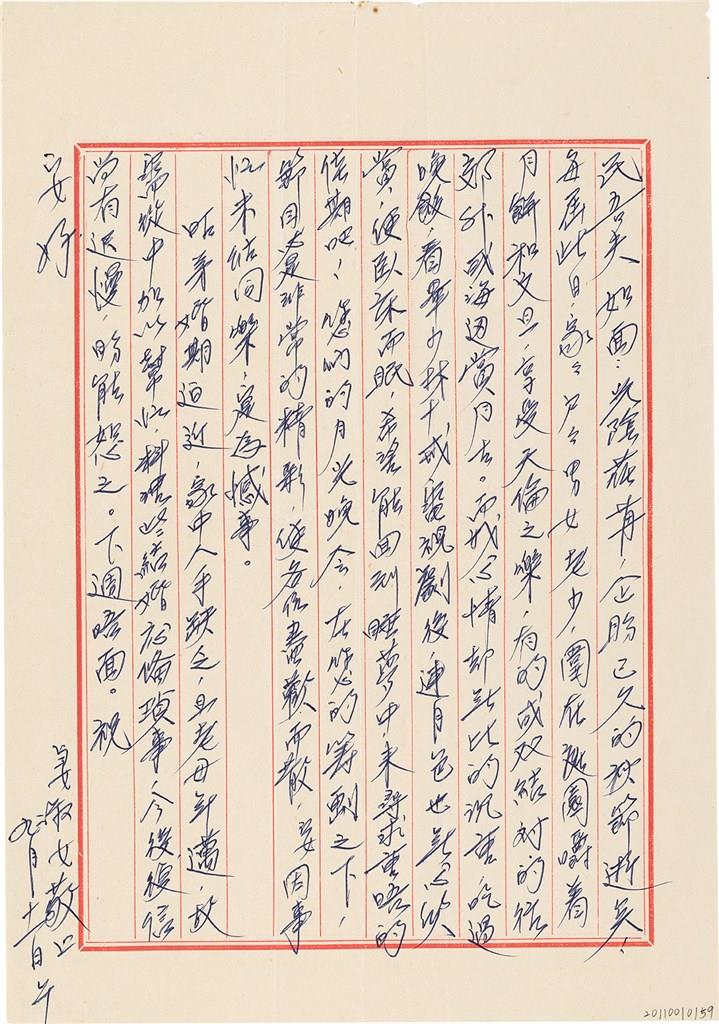 吾夫 如面：光陰荏苒，企盼已久的秋節逝矣！
每屆此日，家々戶々男女老少，圍在 園嚼着
月餅和文旦，享受天倫之樂，有的成双結對的往
郊外或海边賞月去。而我心情却無比的沉重，吃過
晚飯，看畢少林十 電視劇後，連月色也無心欣
賞，便臥床而眠，希望能回到睡夢中，來尋求重唔的
佳期吧！您們的月光晚会，在您的籌劃之下，
節目必是非常的精彩，使各位盡歡而散，妾因事
忙未能同樂，實為憾事。
呫弟婚期迫近，家中人手缺乏，且老母年邁，故
需從中加以幫忙，料理些結婚應備瑣事，今後復信
尚有迟慢，盼能恕之。下週唔面。祝
安好
妾淑女敬上
九月十 日午
20110010159